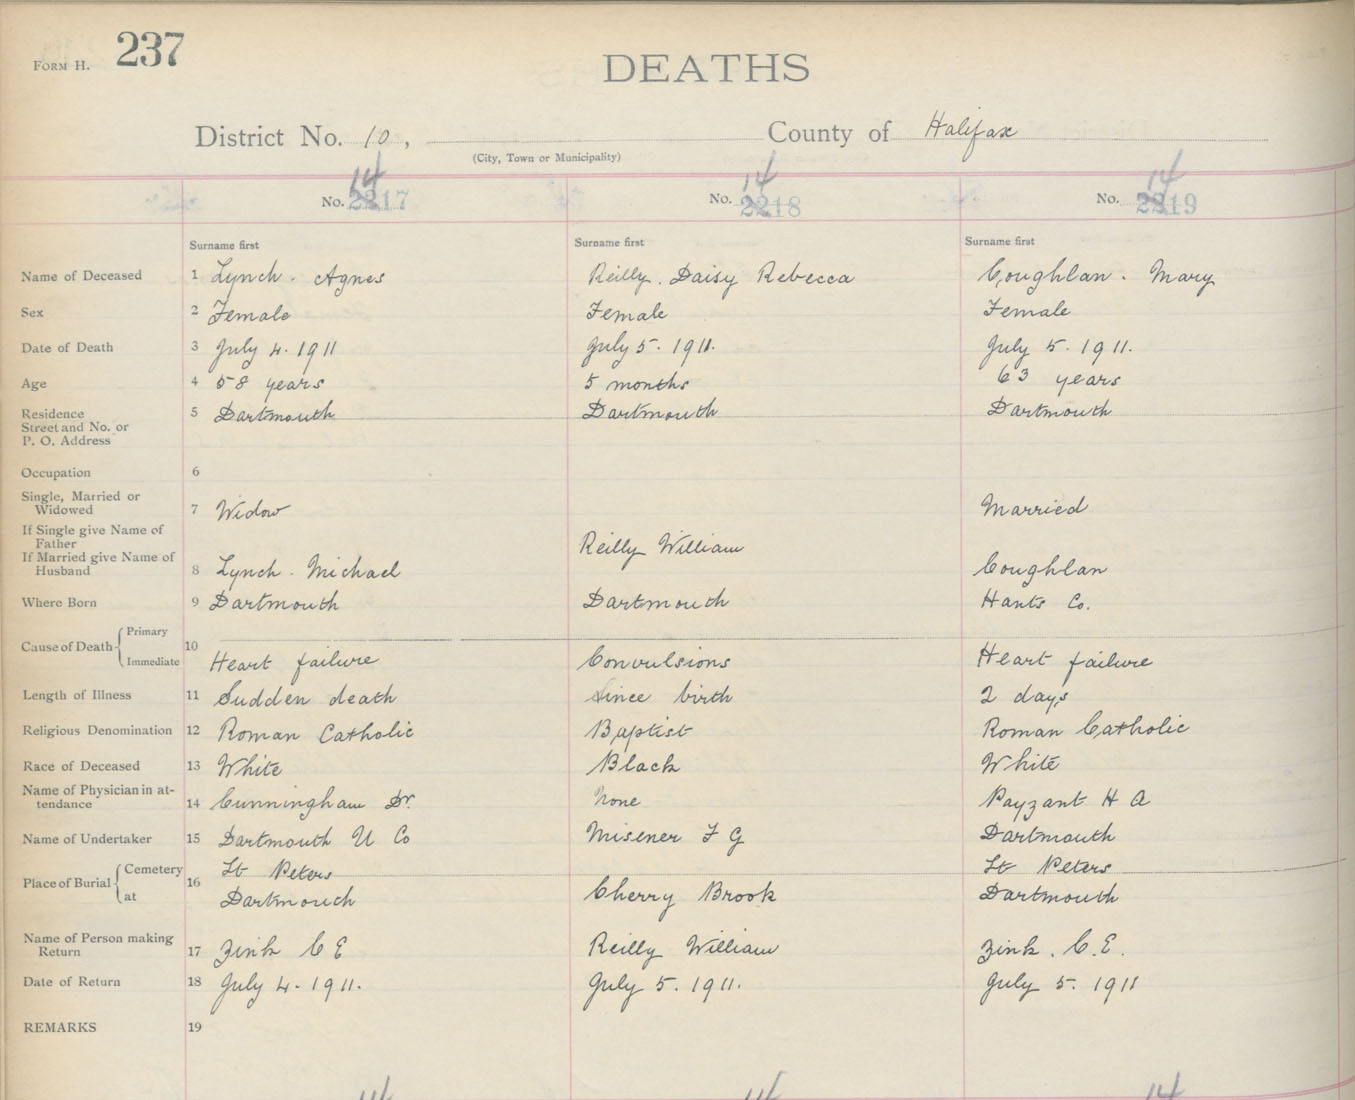 FORM H. 237
DEATHS
District No. 10, County of Halifax
(City, Town or Municipality)
14 14 14
No. 2217 No. 2218 No. 2219
Surname first Surname first Surname first
Name of Deceased 1 Lynch. Agnes Reilly. Daisy Rebecca Coughlan. Mary
Sex 2 Female Female Female
Date of Death 3 July 4. 1911 July 5. 1911. July 5. 1911.
Age 4 58 years 5 months 63 years
Residence 5 Dartmouth Dartmouth Dartmouth
Street and No. or
P. O. Address
Occupation 6
Single, Married or
Widowed 7 Widow Married
If Single give Name of
Father Reilly William
If Married give Name of
Husband 8 Lynch. Michael Coughlan
Where Born 9 Dartmouth Dartmouth Hants Co.
Cause of Death Primary 10
Immediate Heart failure Convulsions Heart failure
Length of Illness 11 Sudden death Since birth 2 days
Religious Denomination 12 Roman Catholic Baptist Roman Catholic
Race of Deceased 13 White Black White
Name of Physician in at-
tendance 14 Cunningham Dr. None Payzant H A
Name of Undertaker 15 Dartmouth U Co Misener F G Dartmouth
Place of Burial Cemetery 16 St Peters St Peters
at Dartmouth Cherry Brook Dartmouth
Name of Person making
Return 17 Zink C E Reilly William Zink. C. E.
Date of Return 18 July 4. 1911. July 5. 1911. July 5. 1911
REMARKS 19
14